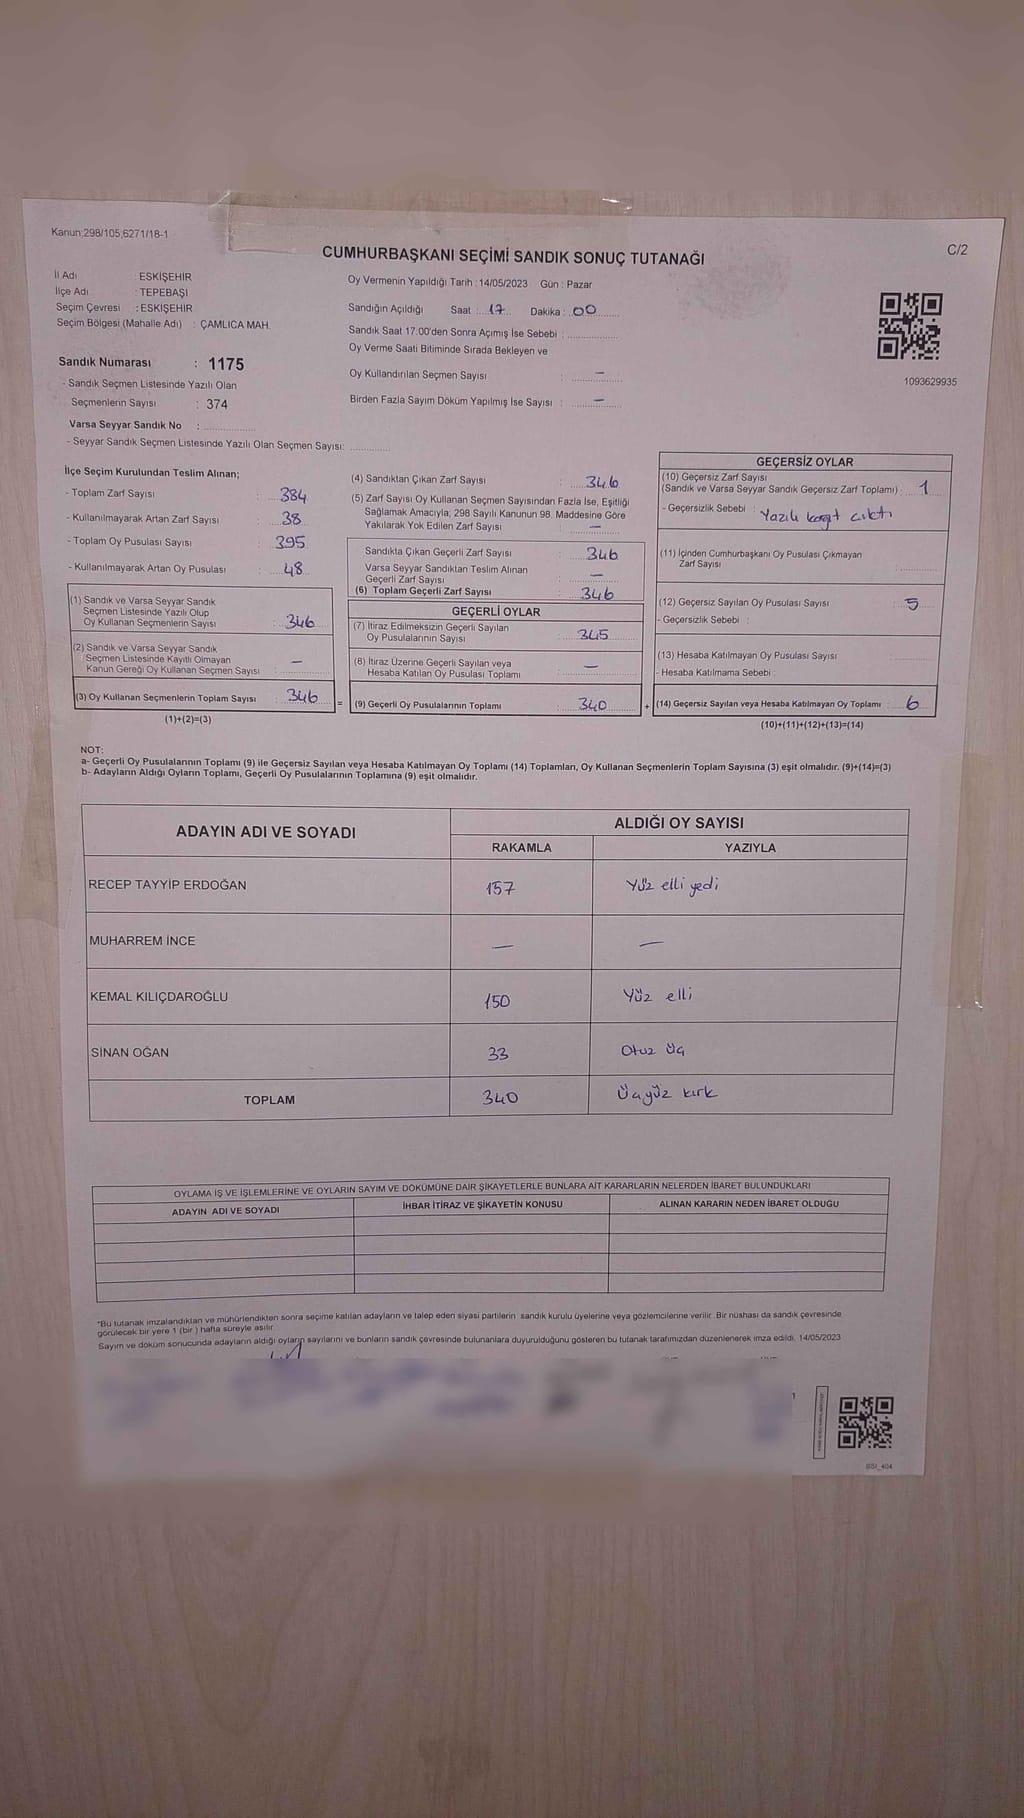 Kanun;298/105,6271/18-1
C/2
CUMHURBAŞKANI SEÇİMİ SANDIK SONUÇ TUTANAĞI
İl Adı : ESKİŞEHİR
İlçe Adı : TEPEBAŞI
Seçim Çevresi : ESKİŞEHİR
Seçim Bölgesi (Mahalle Adı) : ÇAMLICA MAH.
Oy Vermenin Yapıldığı Tarih : 14/05/2023 Gün : Pazar
Sandığın Açıldığı Saat : 17 Dakika : 00
Sandık Saat 17:00'den Sonra Açımış İse Sebebi :
Oy Verme Saati Bitiminde Sırada Bekleyen ve
Oy Kullandırılan Seçmen Sayısı : —
Birden Fazla Sayım Döküm Yapılmış İse Sayısı : —
1093629935
Sandık Numarası : 1175
- Sandık Seçmen Listesinde Yazılı Olan
Seçmenlerin Sayısı : 374
Varsa Seyyar Sandık No :
- Seyyar Sandık Seçmen Listesinde Yazılı Olan Seçmen Sayısı:
İlçe Seçim Kurulundan Teslim Alınan;
- Toplam Zarf Sayısı : 384
- Kullanılmayarak Artan Zarf Sayısı : 38
- Toplam Oy Pusulası Sayısı : 395
- Kullanılmayarak Artan Oy Pusulası : 48
(1) Sandık ve Varsa Seyyar Sandık
Seçmen Listesinde Yazılı Olup
Oy Kullanan Seçmenlerin Sayısı : 346
(2) Sandık ve Varsa Seyyar Sandık
Seçmen Listesinde Kayıtlı Olmayan
Kanun Gereği Oy Kullanan Seçmen Sayısı : —
(3) Oy Kullanan Seçmenlerin Toplam Sayısı 346
(1)+(2)=(3)
(4) Sandıktan Çıkan Zarf Sayısı : 346
(5) Zarf Sayısı Oy Kullanan Seçmen Sayısından Fazla İse, Eşitliği
Sağlamak Amacıyla; 298 Sayılı Kanunun 98. Maddesine Göre
Yakılarak Yok Edilen Zarf Sayısı : —
Sandıkta Çıkan Geçerli Zarf Sayısı : 346
Varsa Seyyar Sandıktan Teslim Alınan
Geçerli Zarf Sayısı : —
(6) Toplam Geçerli Zarf Sayısı : 346
GEÇERLİ OYLAR
(7) İtiraz Edilmeksizin Geçerli Sayılan
Oy Pusulalarının Sayısı : 345
(8) İtiraz Üzerine Geçerli Sayılan veya
Hesaba Katılan Oy Pusulası Toplamı : —
=
(9) Geçerli Oy Pusulalarının Toplamı : 340
GEÇERSİZ OYLAR
(10) Geçersiz Zarf Sayısı
(Sandık ve Varsa Seyyar Sandık Geçersiz Zarf Toplamı) : 1
- Geçersizlik Sebebi : Yazılı kağıt çıktı
(11) İçinden Cumhurbaşkanı Oy Pusulası Çıkmayan
Zarf Sayısı :
(12) Geçersiz Sayılan Oy Pusulası Sayısı : 5
- Geçersizlik Sebebi :
(13) Hesaba Katılmayan Oy Pusulası Sayısı :
- Hesaba Katılmama Sebebi :
+
(14) Geçersiz Sayılan veya Hesaba Katılmayan Oy Toplamı : 6
(10)+(11)+(12)+(13)=(14)
NOT:
a- Geçerli Oy Pusulalarının Toplamı (9) ile Geçersiz Sayılan veya Hesaba Katılmayan Oy Toplamı (14) Toplamları, Oy Kullanan Seçmenlerin Toplam Sayısına (3) eşit olmalıdır. (9)+(14)=(3)
b- Adayların Aldığı Oyların Toplamı, Geçerli Oy Pusulalarının Toplamına (9) eşit olmalıdır.
ADAYIN ADI VE SOYADI
ALDIĞI OY SAYISI
RAKAMLA YAZIYLA
RECEP TAYYİP ERDOĞAN 157 Yüz elli yedi
MUHARREM İNCE — —
KEMAL KILIÇDAROĞLU 150 Yüz elli
SİNAN OĞAN 33 Otuz üç
TOPLAM 340 Üçyüz kırk
OYLAMA İŞ VE İŞLEMLERİNE VE OYLARIN SAYIM VE DÖKÜMÜNE DAİR ŞİKAYETLERLE BUNLARA AİT KARARLARIN NELERDEN İBARET BULUNDUKLARI
ADAYIN ADI VE SOYADI İHBAR İTİRAZ VE ŞİKAYETİN KONUSU ALINAN KARARIN NEDEN İBARET OLDUĞU
*Bu tutanak imzalandıktan ve mühürlendikten sonra seçime katılan adayların ve talep eden siyasi partilerin sandık kurulu üyelerine veya gözlemcilerine verilir. Bir nüshası da sandık çevresinde
görülecek bir yere 1 (bir ) hafta süreyle asılır.
Sayım ve döküm sonucunda adayların aldığı oyların sayılarını ve bunların sandık çevresinde bulunanlara duyurulduğunu gösteren bu tutanak tarafımızdan düzenlenerek imza edildi. 14/05/2023